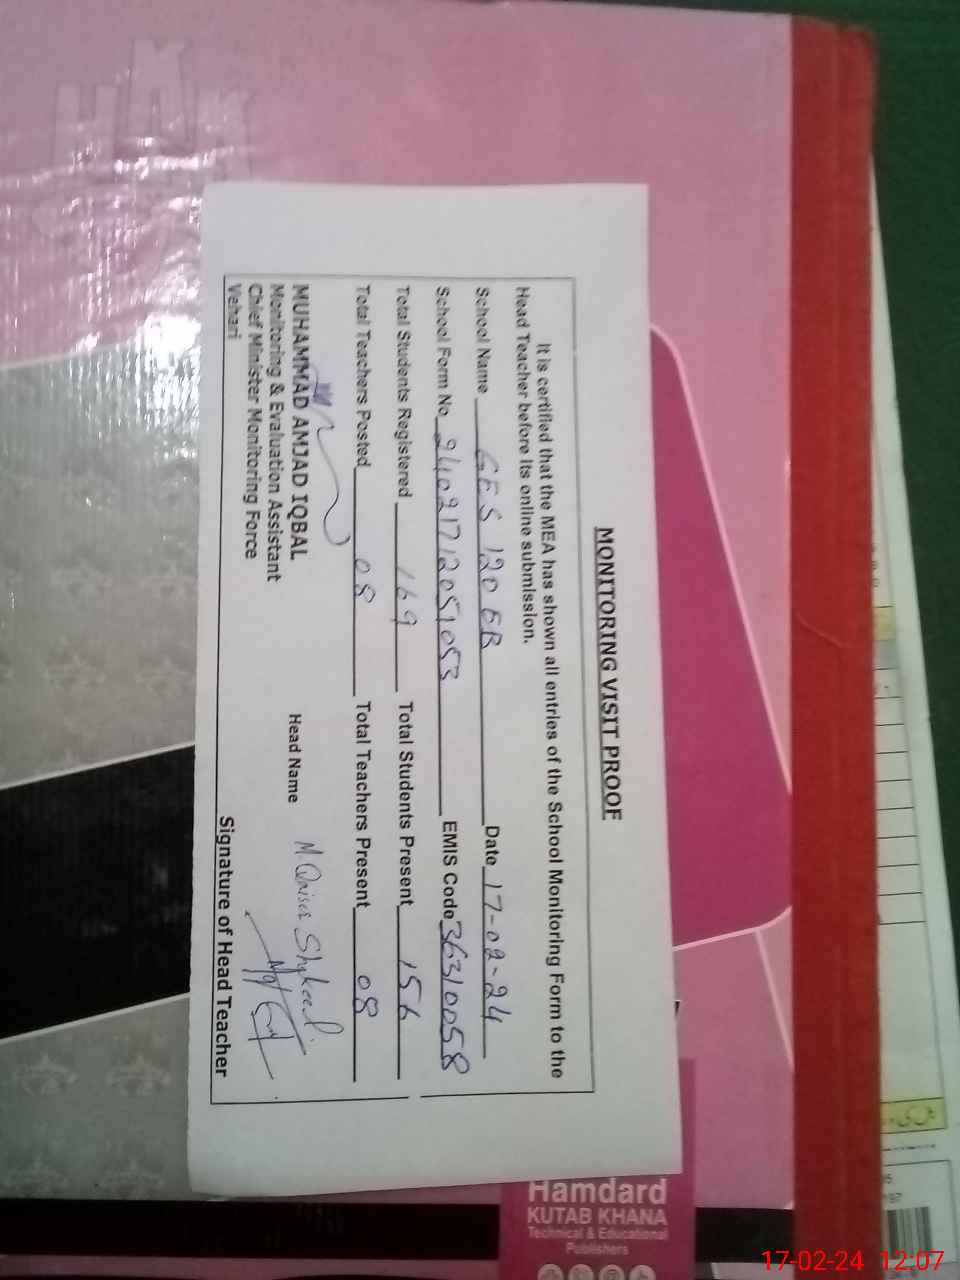 MONITORING VISIT PROOF
It is certified that the MEA has shown all entries of the School Monitoring Form to the
Head Teacher before its online submission.
School Name GES 120 EB Date 17-02-24
School Form No. 24021712051053 EMIS Code 36310058
Total Students Registered 169 Total Students Present 156
Total Teachers Posted 08 Total Teachers Present 08
MUHAMMAD AMJAD IQBAL Head Name M. Qaiser Shakeel
Monitoring & Evaluation Assistant
Chief Minister Monitoring Force
Vehari
Signature of Head Teacher
Hamdard
KUTAB KHANA
Technical & Educational
Publishers
17-02-24 12:07